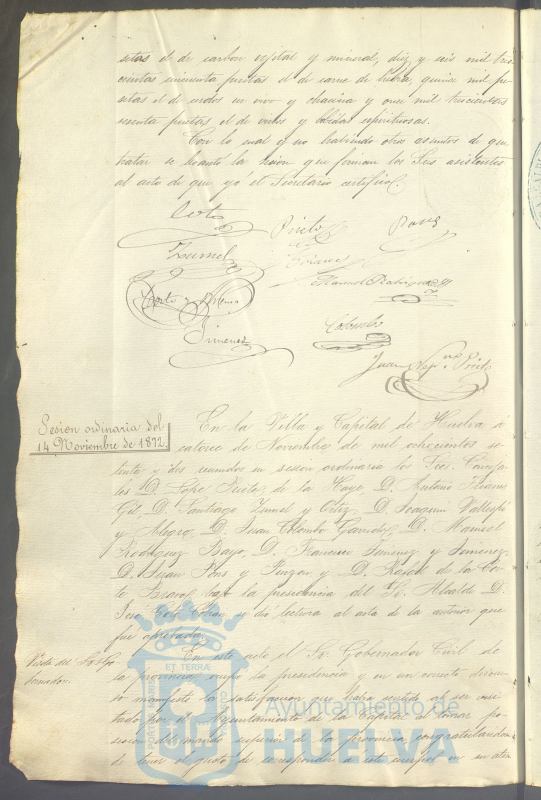 setas el de carbon vejetal y mineral, diez y seis mil tres
cientas cincuenta pesetas el de carne de hebra, quince mil pe
setas el de cerdos en vivo y chacina y once mil trescientas
sesenta pesetas el de vinos y bebidas espirituosas.
Con lo cual y no habiendo otros asuntos de que
tratar se levantó la sesion que firman los Sres asistentes
al acto de que yo el Secretario certifico.
Coto
Prieto
Pons
Zumel
Manuel Rodriguez
Corte y Bravo
Jimenez
Colombo
Juan
Sesion ordinaria del
14 Noviembre de 1872.
En la Villa y Capital de Huelva á
catorce de Noviembre de mil ochocientos se
tenta y dos reunidos en sesion ordinaria los Sres. Conceja
les D. Lope Prieto de la Haya, D. Antonio
Gil, D. Santiago Zumel y Ortiz, D. Joaquin
y Alegre, D. Juan Colombo D. Manuel
Rodriguez Bayo, D. Francisco Jimenez y Jimenez,
D. Juan Pons y Pinzon y D. Rafael de la Cor
te Bravo, bajo la presidencia del Sr. Alcalde D.
José Coto se dió lectura al acta de la anterior que
fué aprobada.
Visita del Sr. Go
bernador.
En este acto el Sr. Gobernador Civil de
la provincia ocupó la presidencia y en un correcto discur
so manifestó la satisfaccion que habia sentido al ser visi
tado por el Ayuntamiento de la Capital al tomar po
sesion del mando superior de la provincia congratulandose
de tener el gusto de corresponder á este cuerpo en su aten
ET TERRAE
Ayuntamiento de
HUELVA